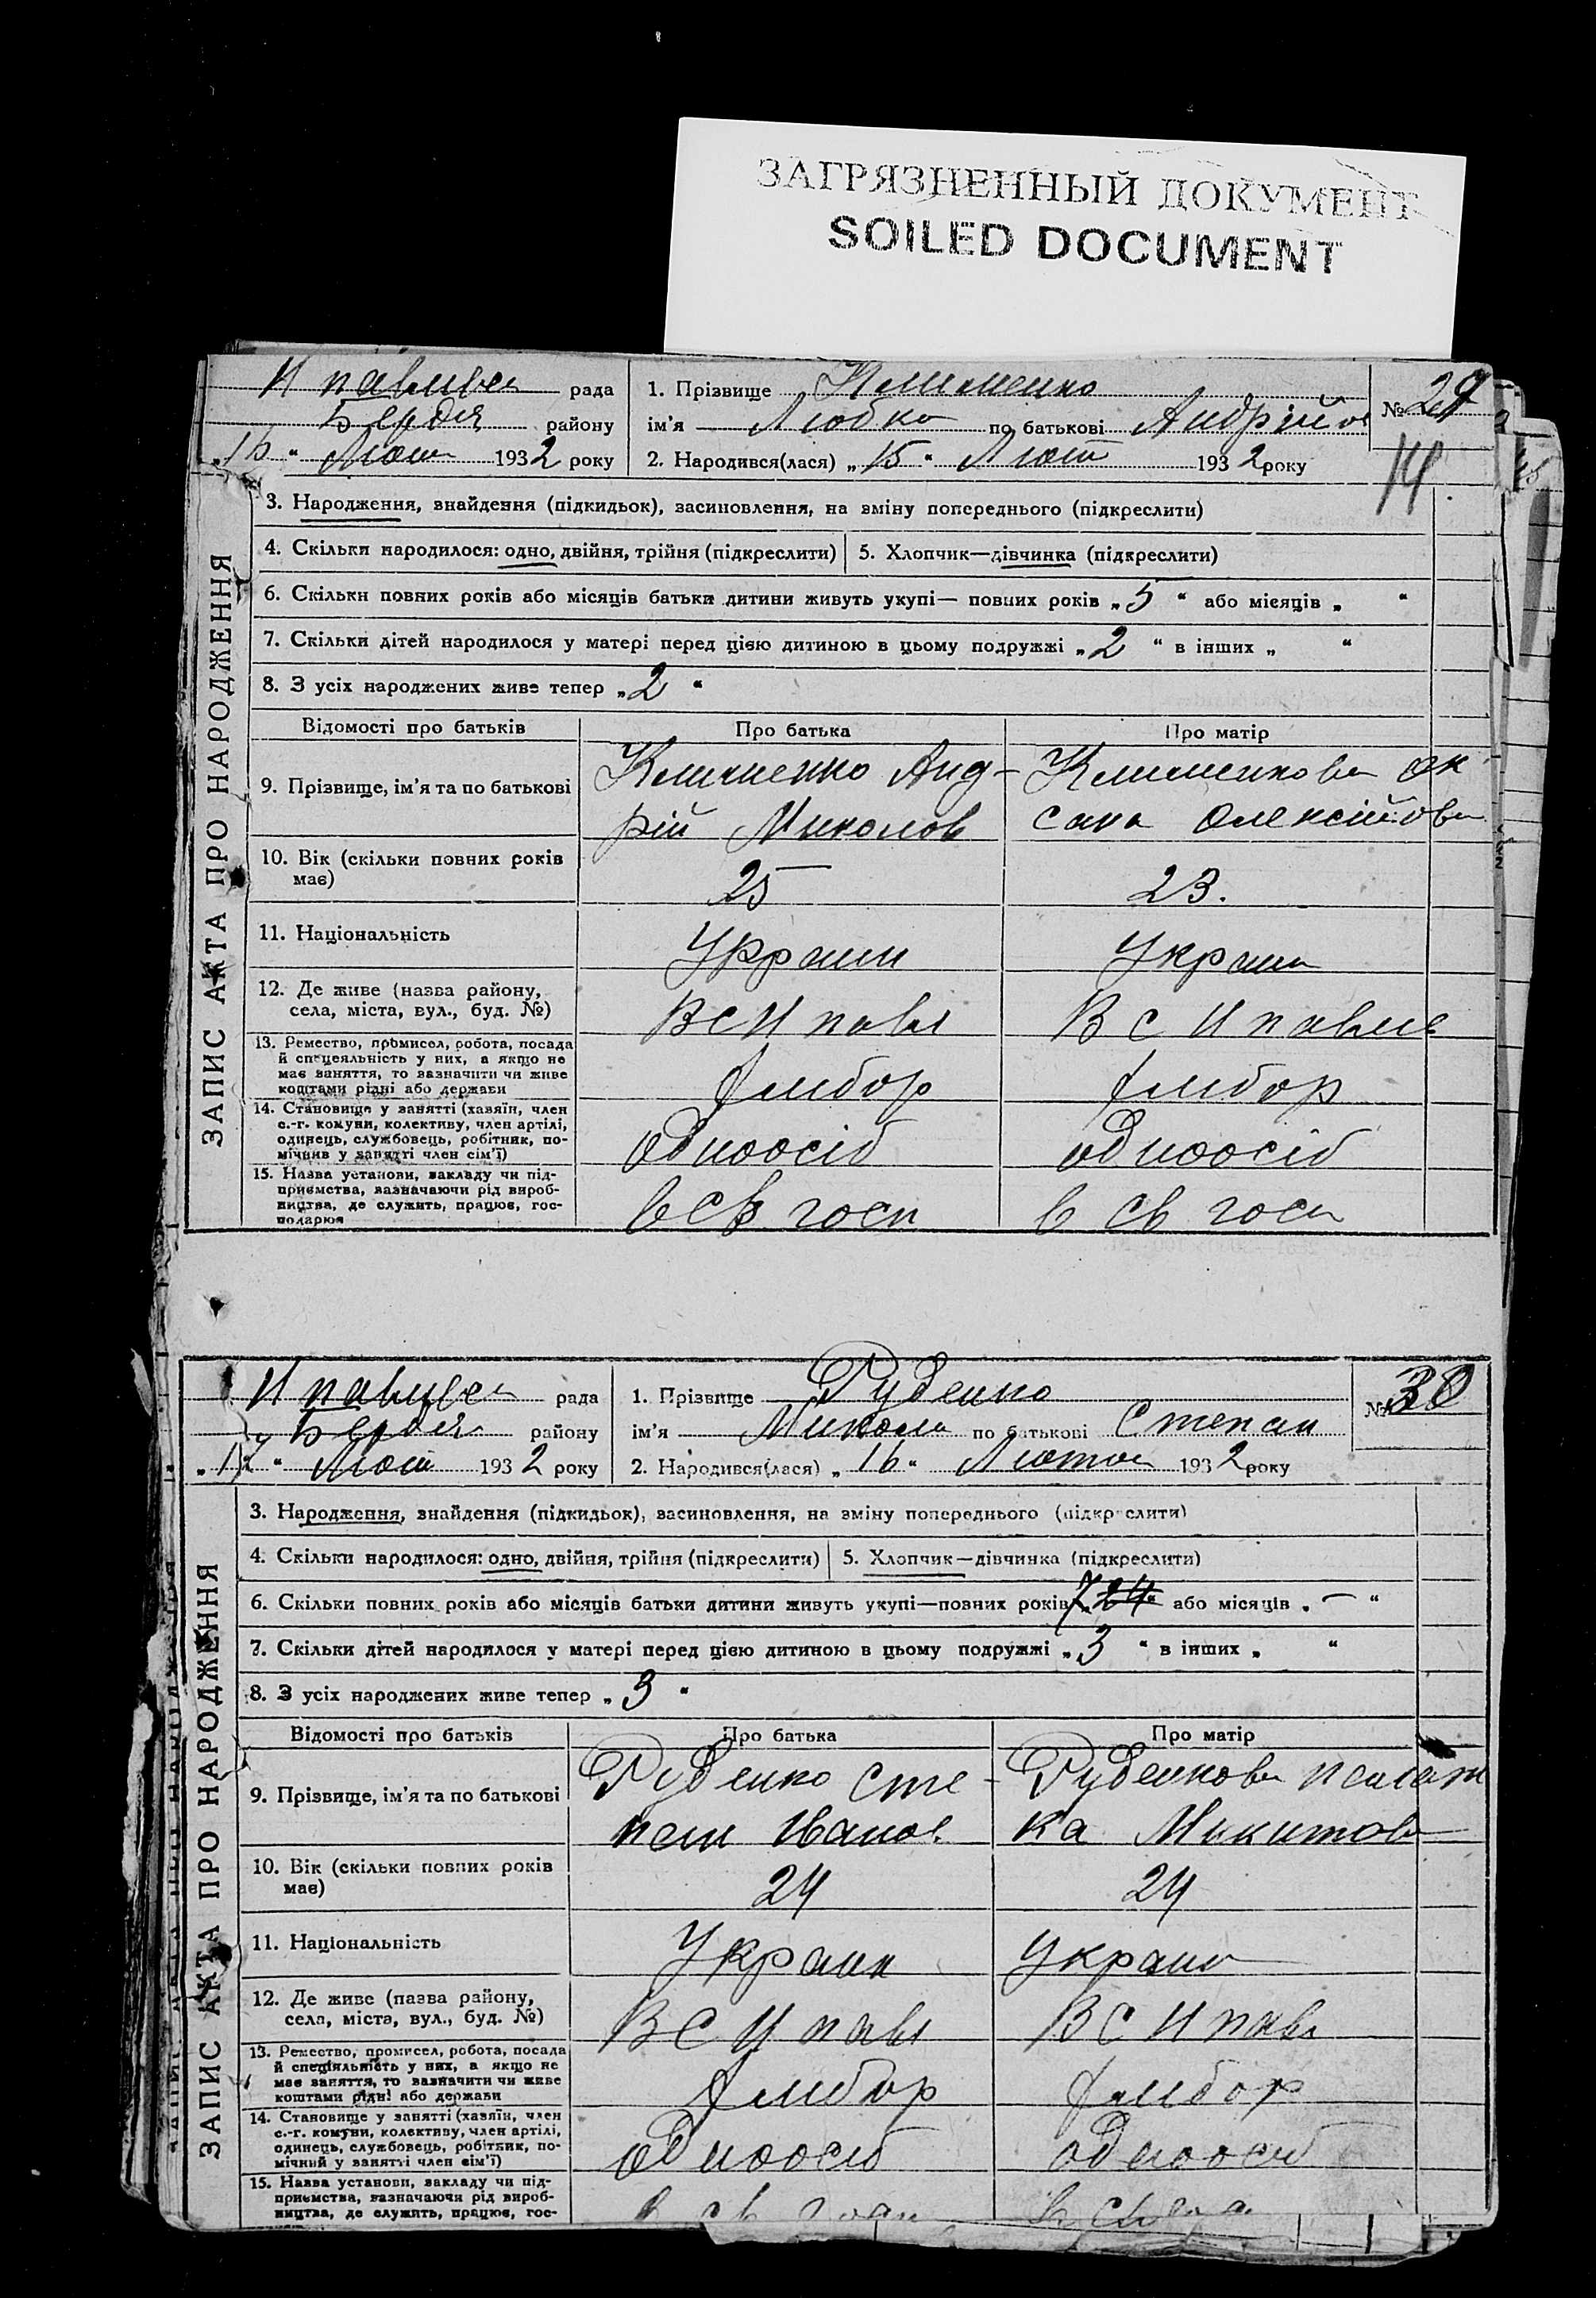 ЗАГРЯЗНЕННЫЙ ДОКУМЕНТ
SOILED DOCUMENT
рада
Бердя району
"16" Лют 1932 року
1. Прізвище Клименко
ім'я Любка по батькові Андрійов
2. Народився(лася) "15" Лют 1932 року
№ 29
14
ЗАПИС АКТА ПРО НАРОДЖЕННЯ
3. Народження, знайдення (підкидьок), засиновлення, на зміну попереднього (підкреслити)
4. Скільки народилося: одно, двійня, трійня (підкреслити)
5. Хлопчик—дівчинка (підкреслити)
6. Скільки повних років або місяців батьки дитини живуть укупі— повних років "5" або місяців " "
7. Скільки дітей народилося у матері перед цією дитиною в цьому подружжі "2" в інших " "
8. З усіх народжених живе тепер "2"
Відомості про батьків Про батька Про матір
9. Прізвище, ім'я та по батькові
Клименко Анд-
рій Миколов
Клименкова Ок
сана Олексійова
10. Вік (скільки повних років
має)
25 23.
11. Національність
Украин Украин
12. Де живе (назва району,
села, міста, вул., буд. №)
В С И павл В С И павлів
13. Ремество, промисел, робота, посада
й спецеяльність у них, а якщо не
має заняття, то вазначити чи живе
коштами рідні або держави
хлибор хлибор
14. Становище у занятті (хазяїн, член
с.-г. комуни, колективу, член артілі,
одинець, службовець, робітник, по-
мічнив у занятті член сім'ї)
одноосіб одноосіб
15. Назва установи, закладу чи під-
приємства, вазначаючи рід вироб-
ництва, де служить, працює, гос-
подарює
в св госп в св госп
рада
Бердя району
"17" Лют 1932 року
1. Прізвище Руденко
ім'я Микола по батькові Степан
2. Народився(лася) "16" Лютого 1932 року
№ 30
ЗАПИС АКТА ПРО НАРОДЖЕННЯ
3. Народження, знайдення (підкидьок), засиновлення, на зміну попереднього (підкреслити)
4. Скільки народилося: одно, двійня, трійня (підкреслити)
5. Хлопчик—дівчинка (підкреслити)
6. Скільки повних років або місяців батьки дитини живуть укупі—повних років 7 "24" або місяців "—"
7. Скільки дітей народилося у матері перед цією дитиною в цьому подружжі "3" в інших " "
8. З усіх народжених живе тепер "3"
Відомості про батьків Про батька Про матір
9. Прізвище, ім'я та по батькові
Руденко Сте-
пан Иванов
Руденкова
ка Микитова
10. Вік (скільки повних років
має)
24 24
11. Національність
Украин Украин
12. Де живе (назва району,
села, міста, вул., буд. №)
В С И павл В С И павл
13. Ремество, промисел, робота, посада
й спеціяльність у них, а якщо не
має заняття, то вазначити чи живе
коштами рідні або держави
хлибор хлибор
14. Становище у занятті (хазяїн, член
с.-г. комуни, колективу, член артілі,
одинець, службовець, робітник, по-
мічний у занятті член сім'ї)
одноосіб одноосіб
15. Назва установи, закладу чи під-
приємства, вазначаючи рід вироб-
ництва, де служить, працює, гос-